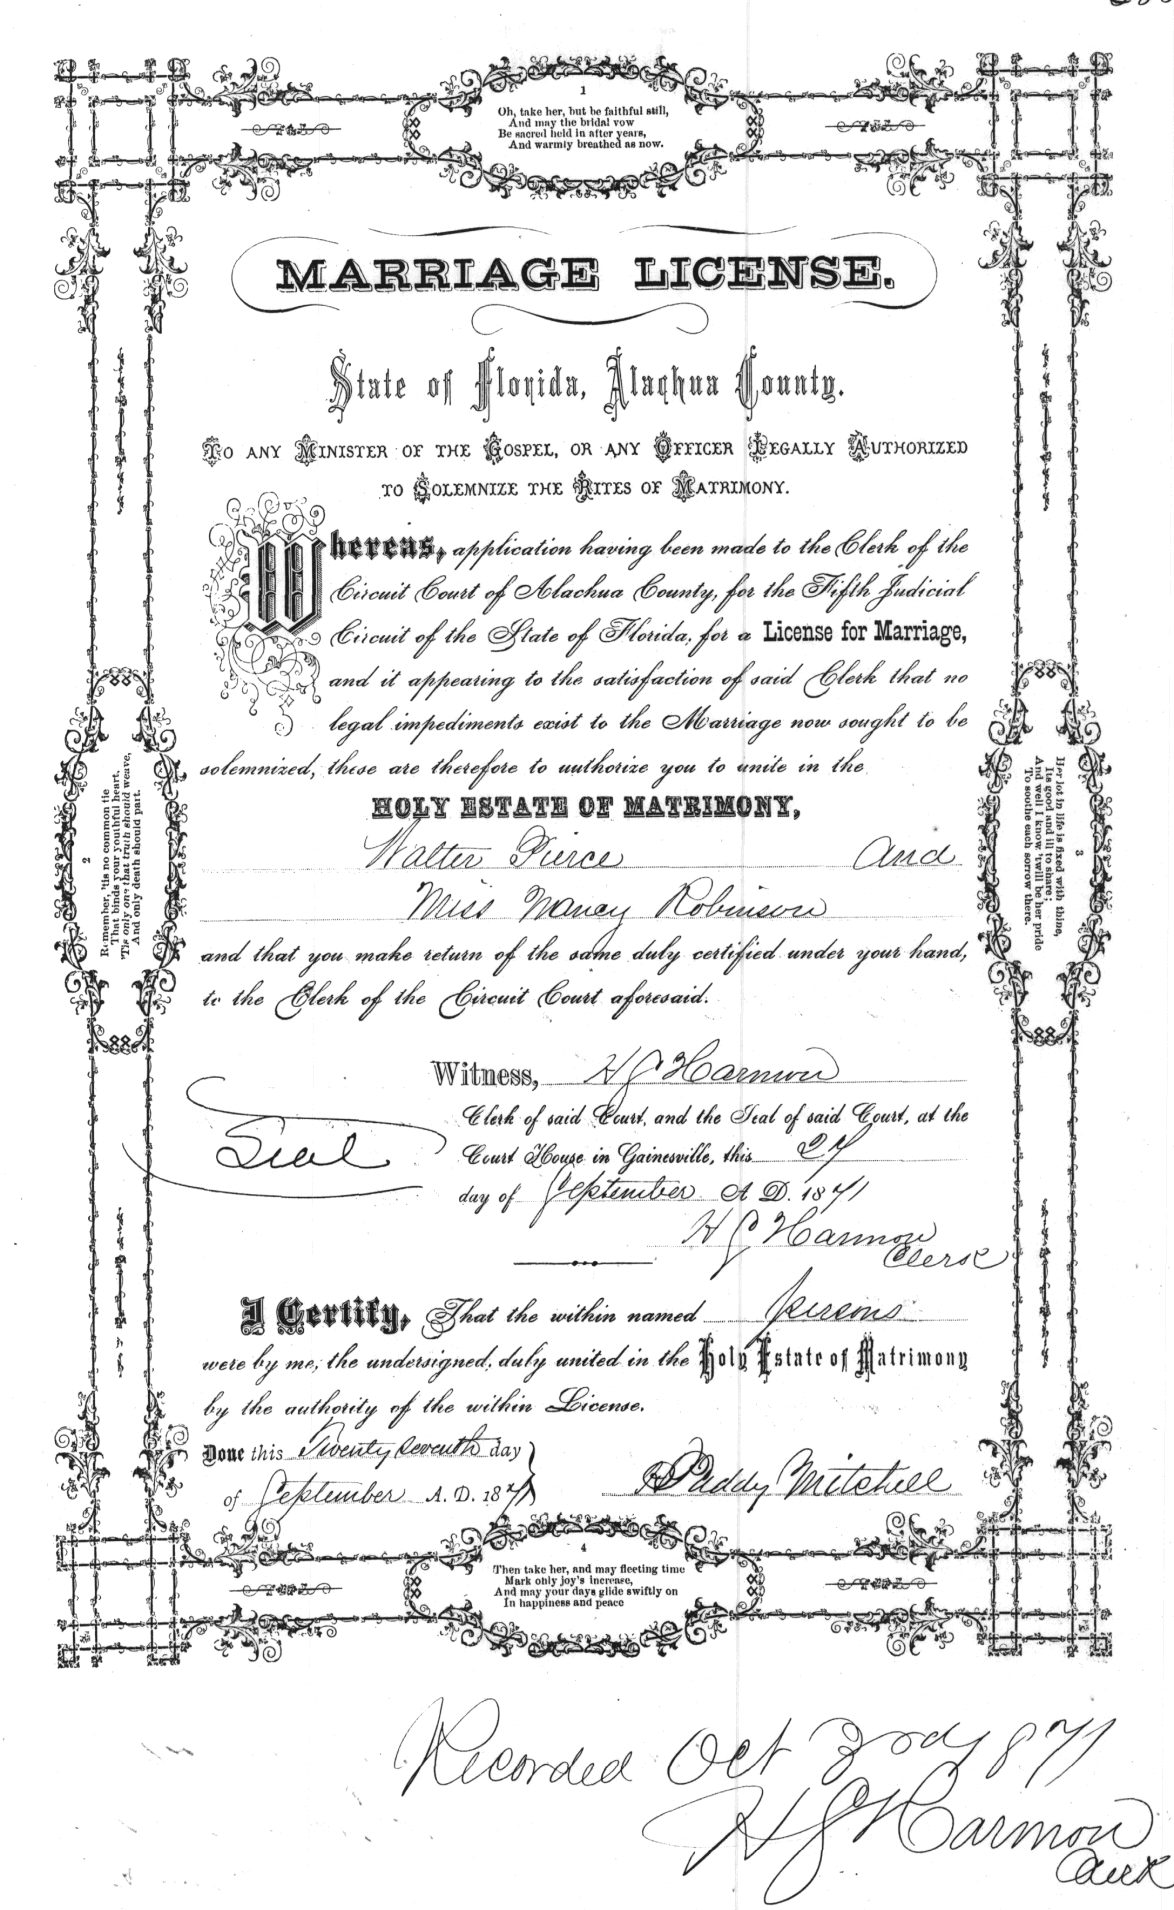 1
Oh, take her, but be faithful still,
And may the bridal vow
Be sacred held in after years,
And warmly breathed as now.
MARRIAGE LICENSE.
State of Florida, Alachua County.
TO ANY MINISTER OF THE GOSPEL, OR ANY OFFICER LEGALLY AUTHORIZED
TO SOLEMNIZE THE RITES OF MATRIMONY.
Whereas, application having been made to the Clerk of the
Circuit Court of Alachua County, for the Fifth Judicial
Circuit of the State of Florida, for a License for Marriage,
and it appearing to the satisfaction of said Clerk that no
legal impediments exist to the Marriage now sought to be
solemnized, these are therefore to authorize you to unite in the
HOLY ESTATE OF MATRIMONY,
Walter Pierce And
Miss Nancy Robinson
and that you make return of the same duly certified under your hand,
to the Clerk of the Circuit Court aforesaid.
2
Remember, 'tis no common tie
That binds your youthful heart,
'Tis only one that truth should weave,
And only death should part.
3
Her lot in life is fixed with thine,
Its good and ill to share;
And well I know 'twill be her pride
To soothe each sorrow there.
Witness, H J Harmon
Clerk of said Court, and the Seal of said Court, at the
Seal
Court House in Gainesville, this 27
day of September A D. 1871
H J Harmon
Clerk
I Certify, That the within named persons
were by me, the undersigned, duly united in the Holy Estate of Matrimony
by the authority of the within License.
Done this Twenty Seventh day
of September A. D. 1871
Paddy Mitchell
4
Then take her, and may fleeting time
Mark only joy's increase,
And may your days glide swiftly on
In happiness and peace
Recorded Oct 3rd 1871
H J Harmon
Clerk